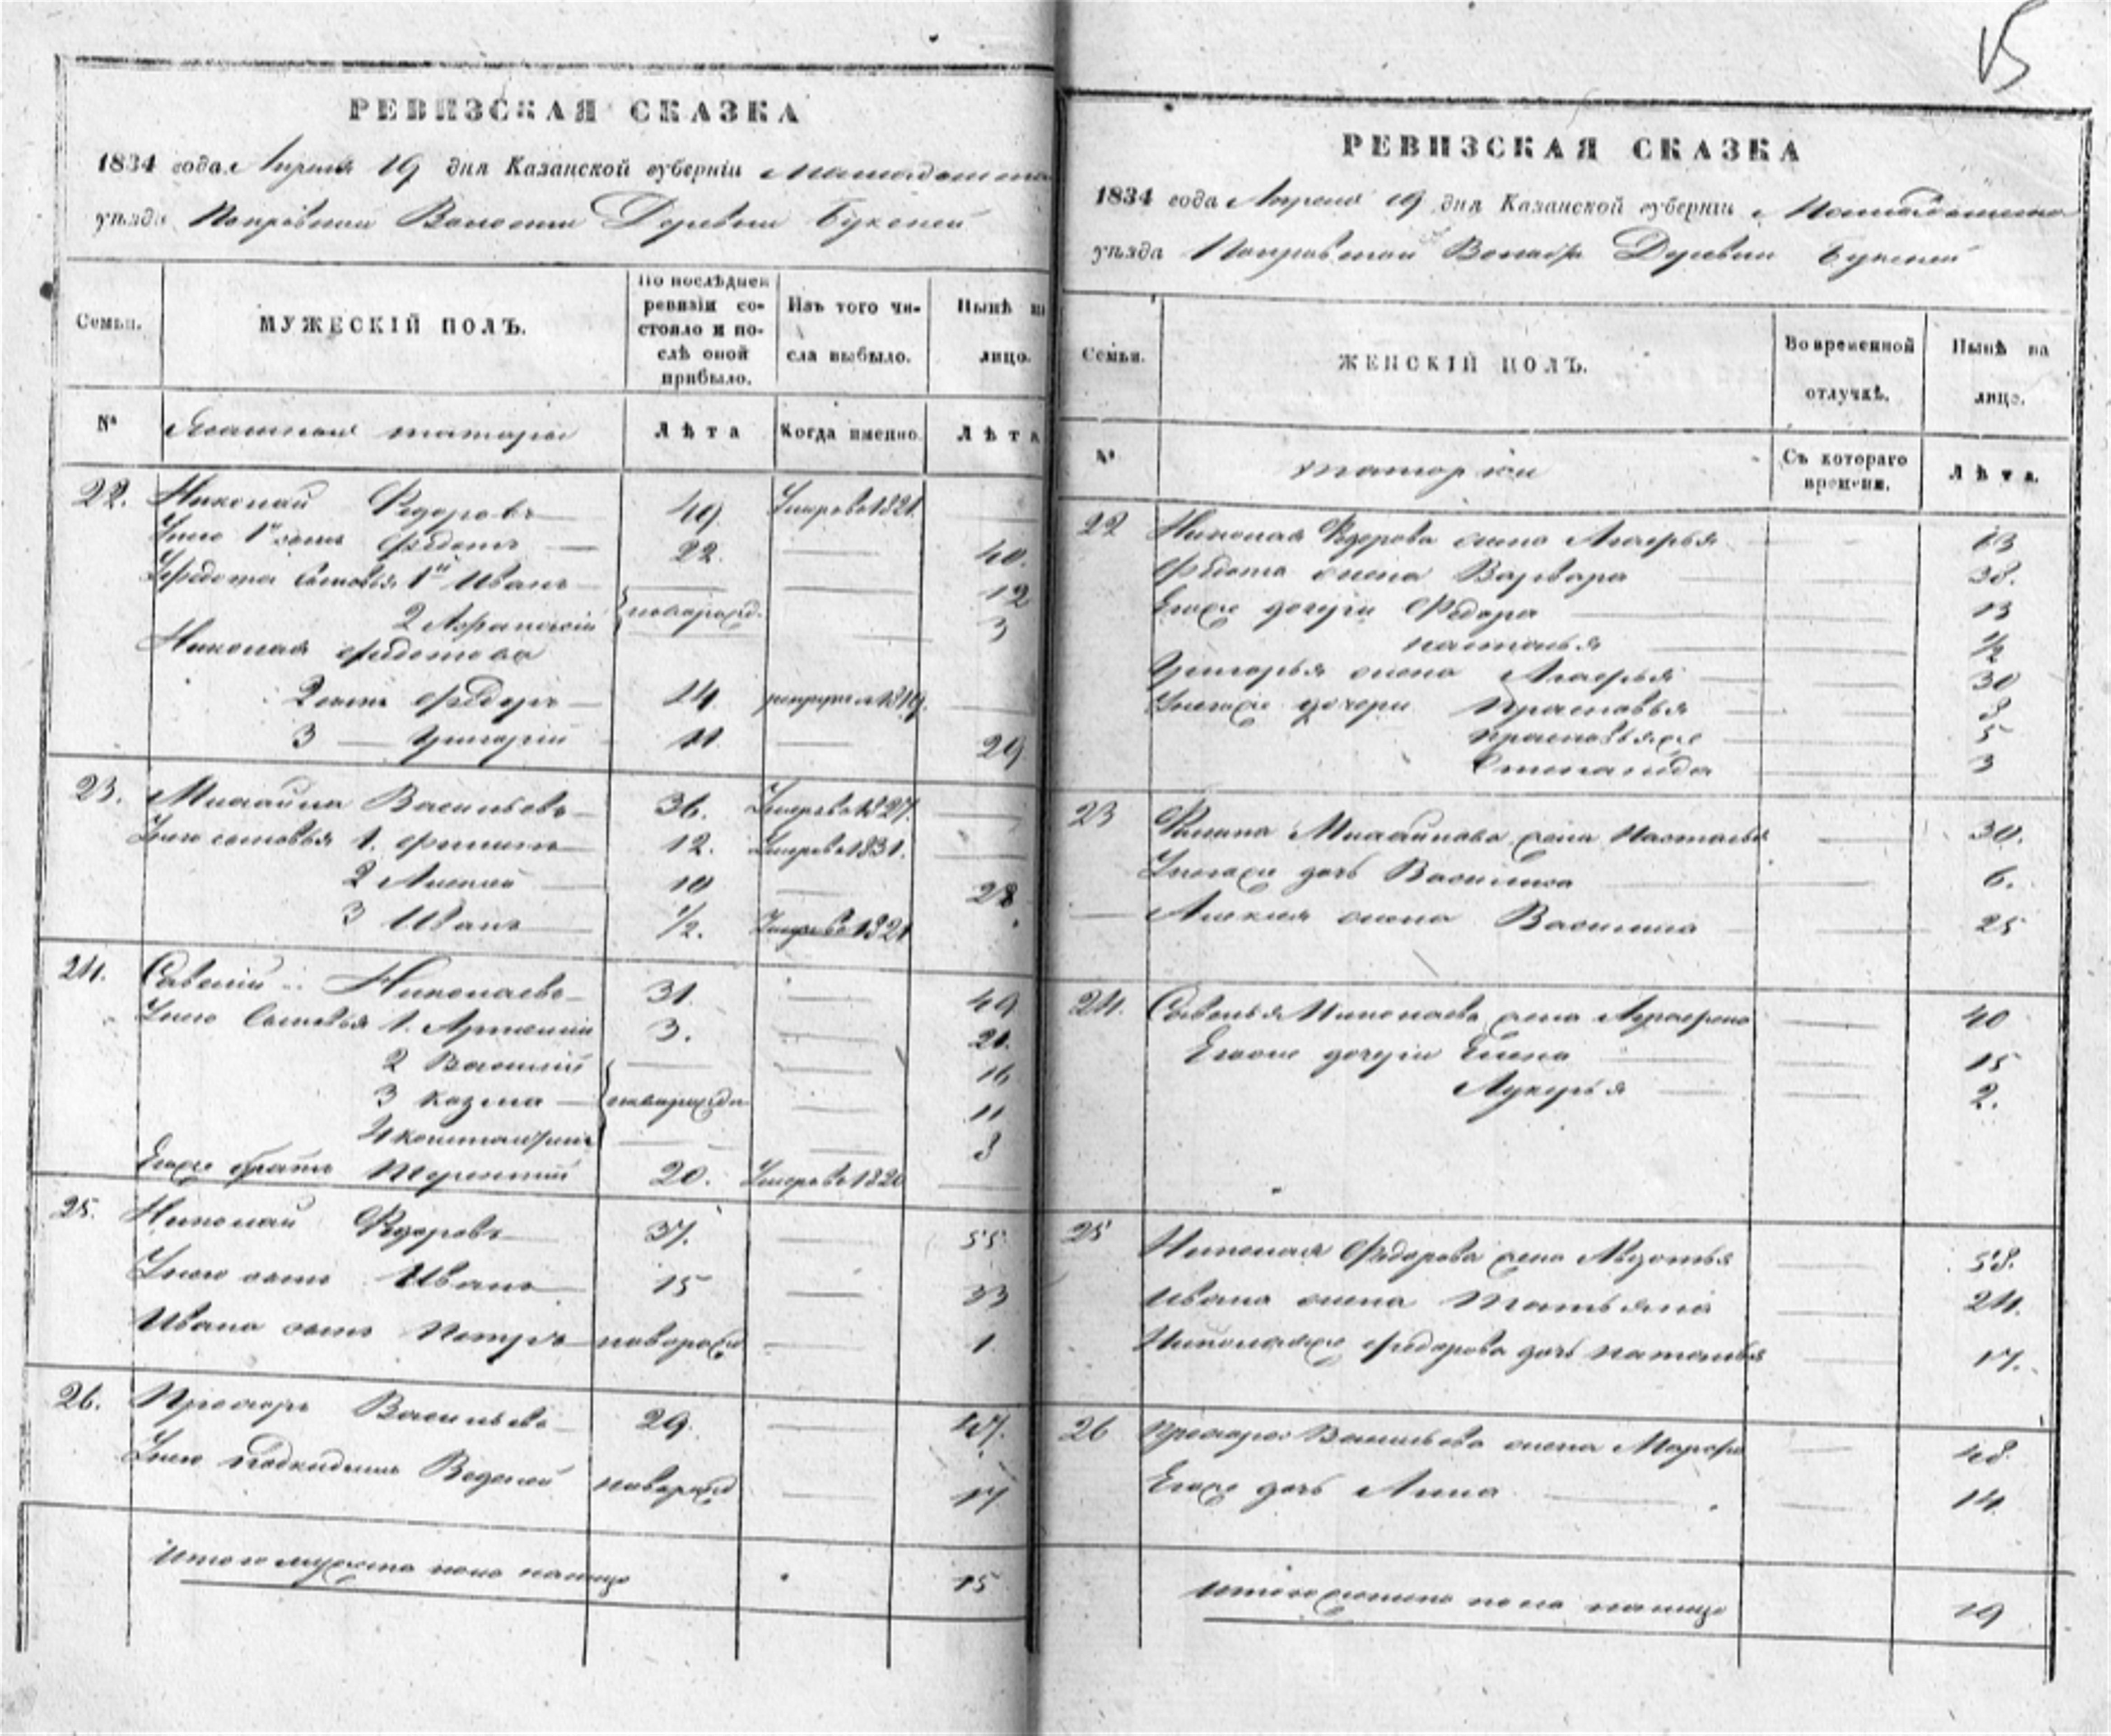 15
РЕВИЗСКАЯ СКАЗКА
1834 года Апреля 19 дня Казанской губерніи Мамадышского
уѣзда Волости Деревни Букеней
Семьи.
МУЖЕСКІЙ ПОЛЪ.
По послѣдней ревизіи состояло и послѣ оной прибыло.
Изъ того числа выбыло.
Нынѣ на лицо.
№
татары
Лѣта
Когда именно.
Лѣта
22. Николай Федоровъ 49 Умеръ въ 1821.
У него 1й сынъ Федотъ 22. 40.
У Федота сыновья 1й Иванъ 12
2 новорожд. 3
Николая Федотова
2 сынъ Федоръ 14 1819.
3 Григорій 11 29
23. Михайла Васильевъ 36. Умеръ въ 1827.
У него сыновья 1. Филипъ 12. Умеръ въ 1831.
2 Алексей 10 28
3 Иванъ 1/2. Умеръ въ 1821
24. Савелій Николаевъ 31. 49
У него Сыновья 1. 3. 21.
2 Василий 16
3 Козма новорожден 11
4 Константинъ 8
Егоже братъ Терентий 20. Умеръ въ 1820
25. Николай Федоровъ 37. 55.
У него сынъ Иванъ 15 33
Ивана сынъ Петръ новорожд 1.
26. Прохоръ Васильевъ 29. 47.
У него подкидышъ новорожд 17
Итого мужеска пола налицо 15
РЕВИЗСКАЯ СКАЗКА
1834 года Апреля 19 дня Казанской губерніи Мамадышского
уѣзда Деревни Букеней
Семьи.
ЖЕНСКІЙ ПОЛЪ.
Во временной отлучкѣ.
Нынѣ на лицо.
№
татарки
Съ котораго времени.
Лѣта.
22 Николая Федорова жена 63
Федота жена Варвара 38.
Егоже дочери Федора 13
Наталья 1/2
Григорья жена 30
У нихже дочери Прасковья 8
Прасковьяже 5
Степанида 3
23 Филипа Михайлова жена Настасья 30.
У нихже дочь Василиса 6.
Алексея жена Василиса 25
24. Савелья Николаева жена Аграфена 40
Егоже дочери Елена 15
Лукерья 2.
25 Николая Федорова жена Авдотья 58.
Ивана жена Татьяна 24.
Николаяже Федорова дочь Наталья 17.
26 Прохора Васильева жена Марфа 48.
Егоже дочь Анна 14.
Итого женска пола налицо 19